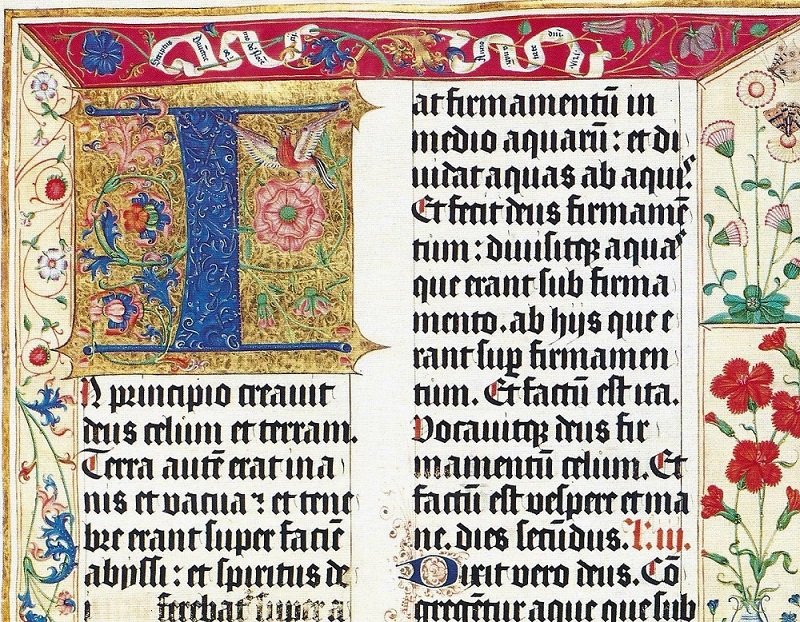 IN principio creavit
deus celium et terram.
Terra autē erat ina
nis et vacua : et tene
bre erant super faciē
abijssi : et spiritus de
ferebat super a
at firmamentū in
medio aquarū : et di
vidat aquas ab aquis.
Et fecit deus firmamē
tium : divisitqꝫ aquas
que erant sub firma
mento. ab hijs que e
rant sup firmamen
tium. Et factū est ita.
Vocavitqꝫ deus fir
mamentū celium. Et
factū est vespere et ma
ne. dies secūdus.
Dixit vero deus. Cō
gregētur aque que sub